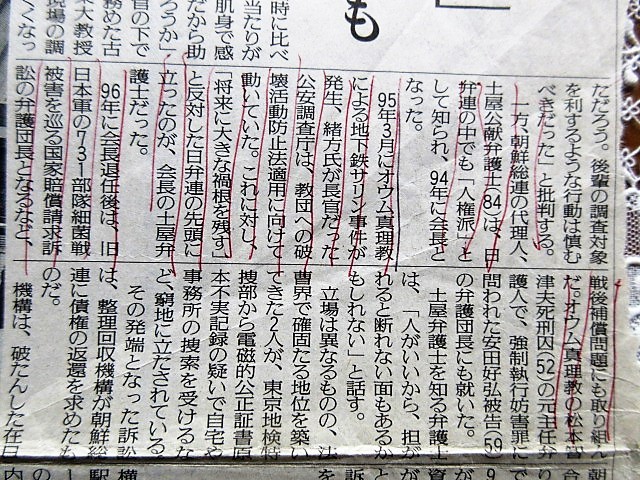 」
も
時に比べ
当たりが
肌身で感
だから助
ろうか」
官の下で
務めた古
木大教授
現場の調
くなっ
ただろう。後輩の調査対象
を利するような行動は慎む
べきだった」と批判する。
一方、朝鮮総連の代理人、
土屋公献弁護士(84)は、日
弁連の中でも「人権派」と
して知られ、94年に会長と
なった。
95年3月にオウム真理教
による地下鉄サリン事件が
発生、緒方氏が長官だった
公安調査庁は、教団への破
壊活動防止法適用に向けて
動いていた。これに対し、
「将来に大きな禍根を残す」
と反対した日弁連の先頭に
立ったのが、会長の土屋弁
護士だった。
96年に会長退任後は、旧
日本軍の731部隊細菌戦
被害を巡る国家賠償請求訴
訟の弁護団長となるなど、
戦後補償問題にも取り組ん
だ。オウム真理教の松本智
津夫死刑囚(52)の元主任弁
護人で、強制執行妨害罪に
問われた安田好弘被告(59)
の弁護団長にも就いた。
土屋弁護士を知る弁護士
は、「人がいいから、担が
れると断れない面もあるか
もしれない」と話す。
立場は異なるものの、法
曹界で確固たる地位を築い
てきた2人が、東京地検特
捜部から電磁的公正証書原
本不実記録の疑いで自宅や
事務所の捜索を受けるな
ど、窮地に立たされている。
その発端となった訴訟
は、整理回収機構が朝鮮総
連に債権の返還を求めたも
のだ。
機構は、破たんした在日